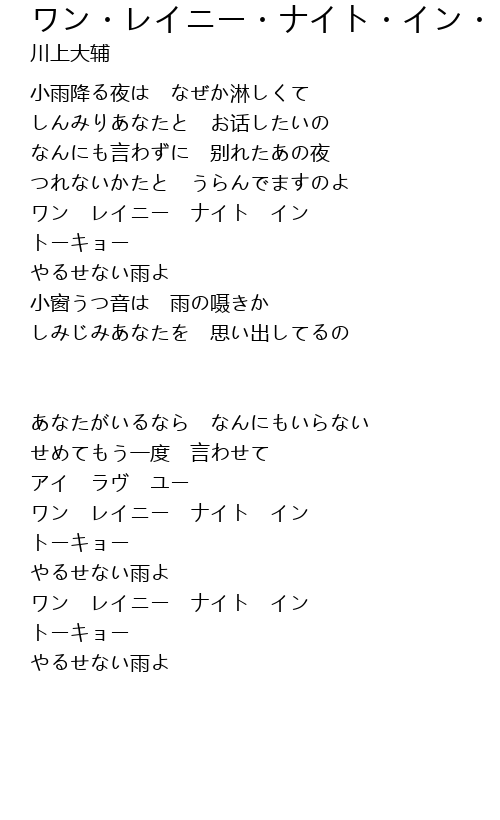 ワン・レイニー・ナイト・イン・
川上大辅
小雨降る夜は　なぜか淋しくて
しんみりあなたと　お话したいの
なんにも言わずに　别れたあの夜
つれないかたと　うらんでますのよ
ワン　レイニー　ナイト　イン
トーキョー
やるせない雨よ
小窗うつ音は　雨の嗫きか
しみじみあなたを　思い出してるの
あなたがいるなら　なんにもいらない
せめてもう一度　言わせて
アイ　ラヴ　ユー
ワン　レイニー　ナイト　イン
トーキョー
やるせない雨よ
ワン　レイニー　ナイト　イン
トーキョー
やるせない雨よ